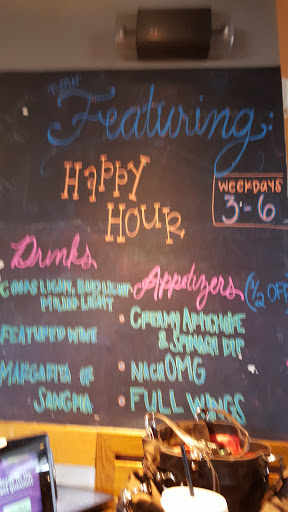 Featuring:
Happy
Hour
WEEKDAYS
3-6
Drinks
COORS LIGHT, BUD LIGHT
MILLER LIGHT
FEATURED WINE
MARGARITA OR
SANGRIA
Appetizers (1/2 OFF)
CREAMY ARTICHOKE
& SPINACH DIP
NACHOMG
FULL WINGS